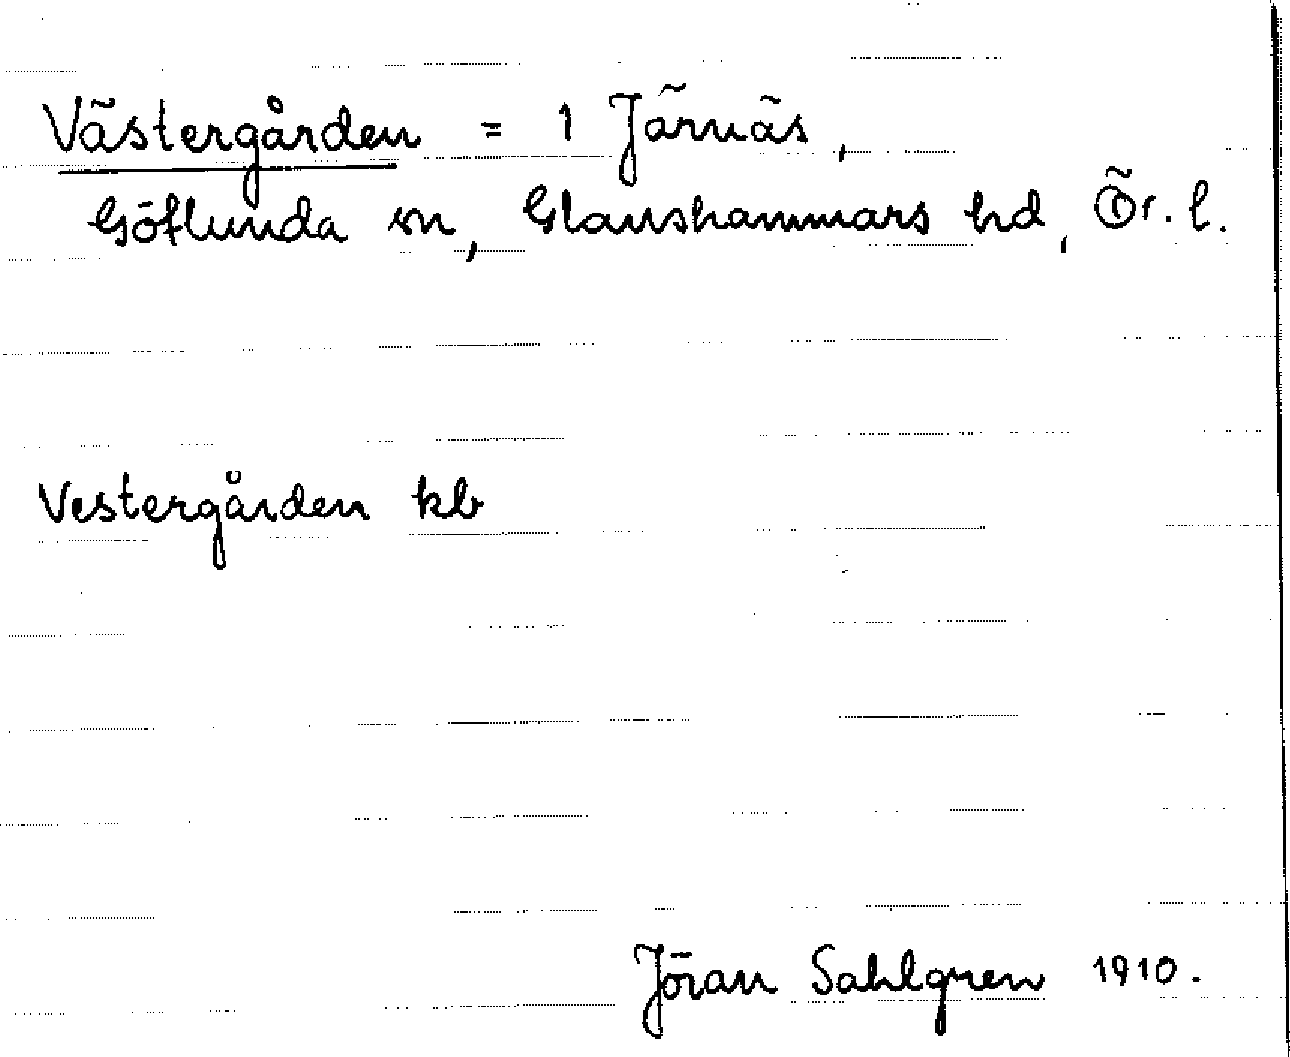 Västergården = 1 Järnäs,
Götlunda sn, Glanshammars hd, Ör. l.
Vestergården kb
Jöran Sahlgren 1910.